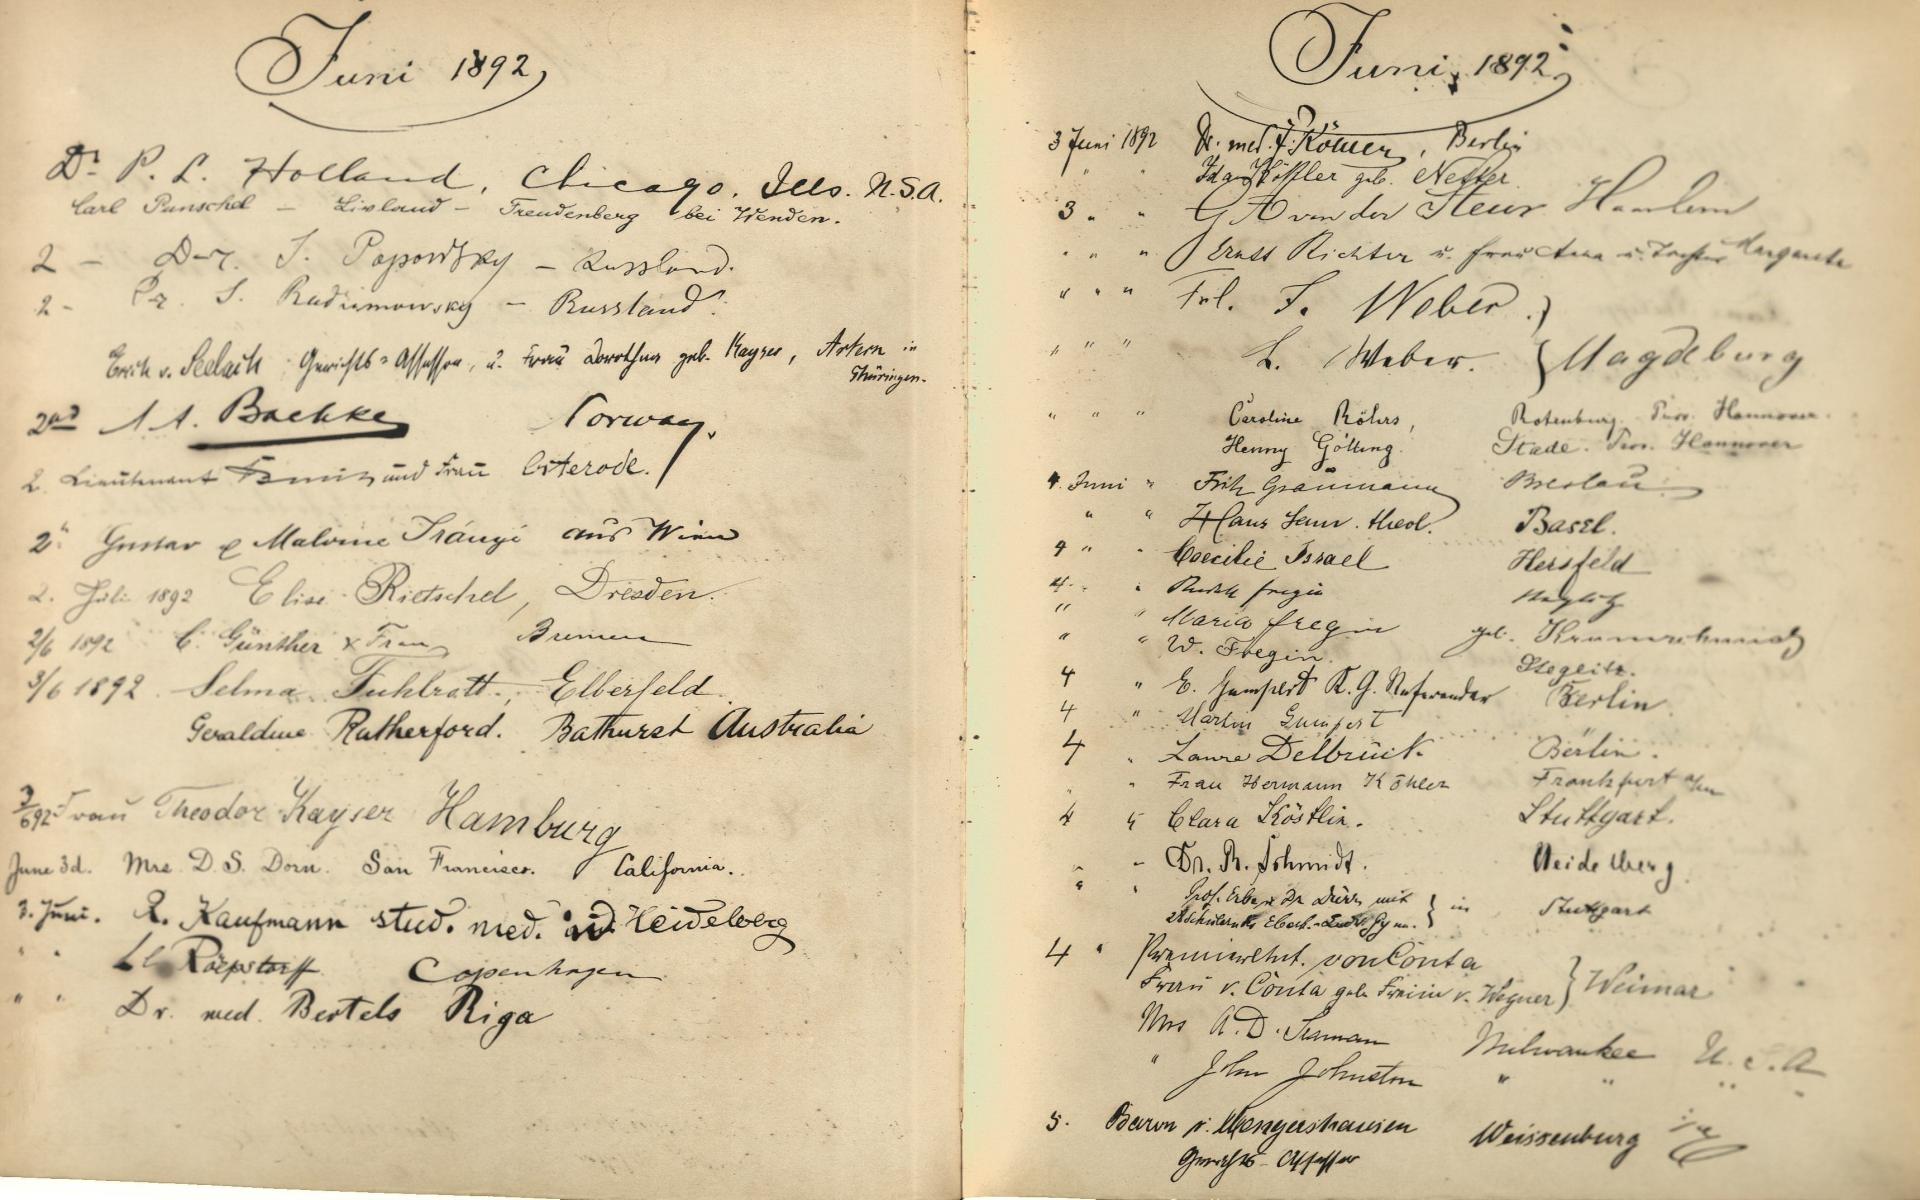 Juni 1892
Dr. P. L. Holland, Chicago. Ills. U.S.A.
Carl Punschel – Livland – Freudenberg bei Wenden.
2 – D-r. S. Popowsky – Russland.
2 – Dr. S. Radimowsky – Russland.
Erich v. Seebach, Gerichts-Assessor, u. Frau Dorothea geb. Kayser, Artern in
Thüringen.
2nd A. Baehke Norway.
2. Lieutenant und Frau Osterode.
2. Gustav & Malvine Irányi aus Wien
2. Juli 1892 Elise Rietschel, Dresden.
2/6 1892 C. Günther & Frau Bremen
3/6 1892. Selma Fuhlrott, Elberfeld.
Geraldine Rutherford. Bathurst Australia
3/6 92 Frau Theodor Kayser Hamburg
June 3d. Mrs D. S. Dorn. San Francisco. California.
3. Juni. R. Kaufmann stud. med. Heidelberg
" " Roepstorff Copenhagen
" " Dr. med. Bertels Riga
Juni 1892
3 Juni 1892 Dr. med. Berlin
" " Ida geb.
3 " " G A van der Steur Haarlem
" " " Ernst Richter u. Frau Anna u. Tochter Margarete
" " " Frl. S. Weber }
" " " L. Weber. } Magdeburg
" " " Caroline Röhrs, Rotenburg. Prov. Hannover.
Henny Götting. Stade. Prov. Hannover
4. Juni " Fritz Graumann Breslau
" " Hans theol. Basel.
4 " " Caecilie Israel Hersfeld
4. " Fregin
" " Maria Fregin geb.
" " W. Fregin. Steglitz.
4 " E. Gumpert K. G. Referendar Berlin
4 " Martin Gumpert
4 " Laura Delbrück Berlin.
" " Frau Hermann Köhler Frankfurt a/m
4 " Clara Köstlin. Stuttgart.
" " Dr. R. Schmidt. Heidelberg.
" " Prof. Erbe u. Dr mit } in Stuttgart
Schülern des Eberh.-Ludw. Gymn. }
4 " Premierlnt. von Conta } Weimar
Frau v. Conta geb. Freiin v. Wagner }
Mrs A. D. Seaman Milwaukee U.S.A
" John Johnston " " "
5. Baron v. Mengershausen Weissenburg
Gerichts-Assessor